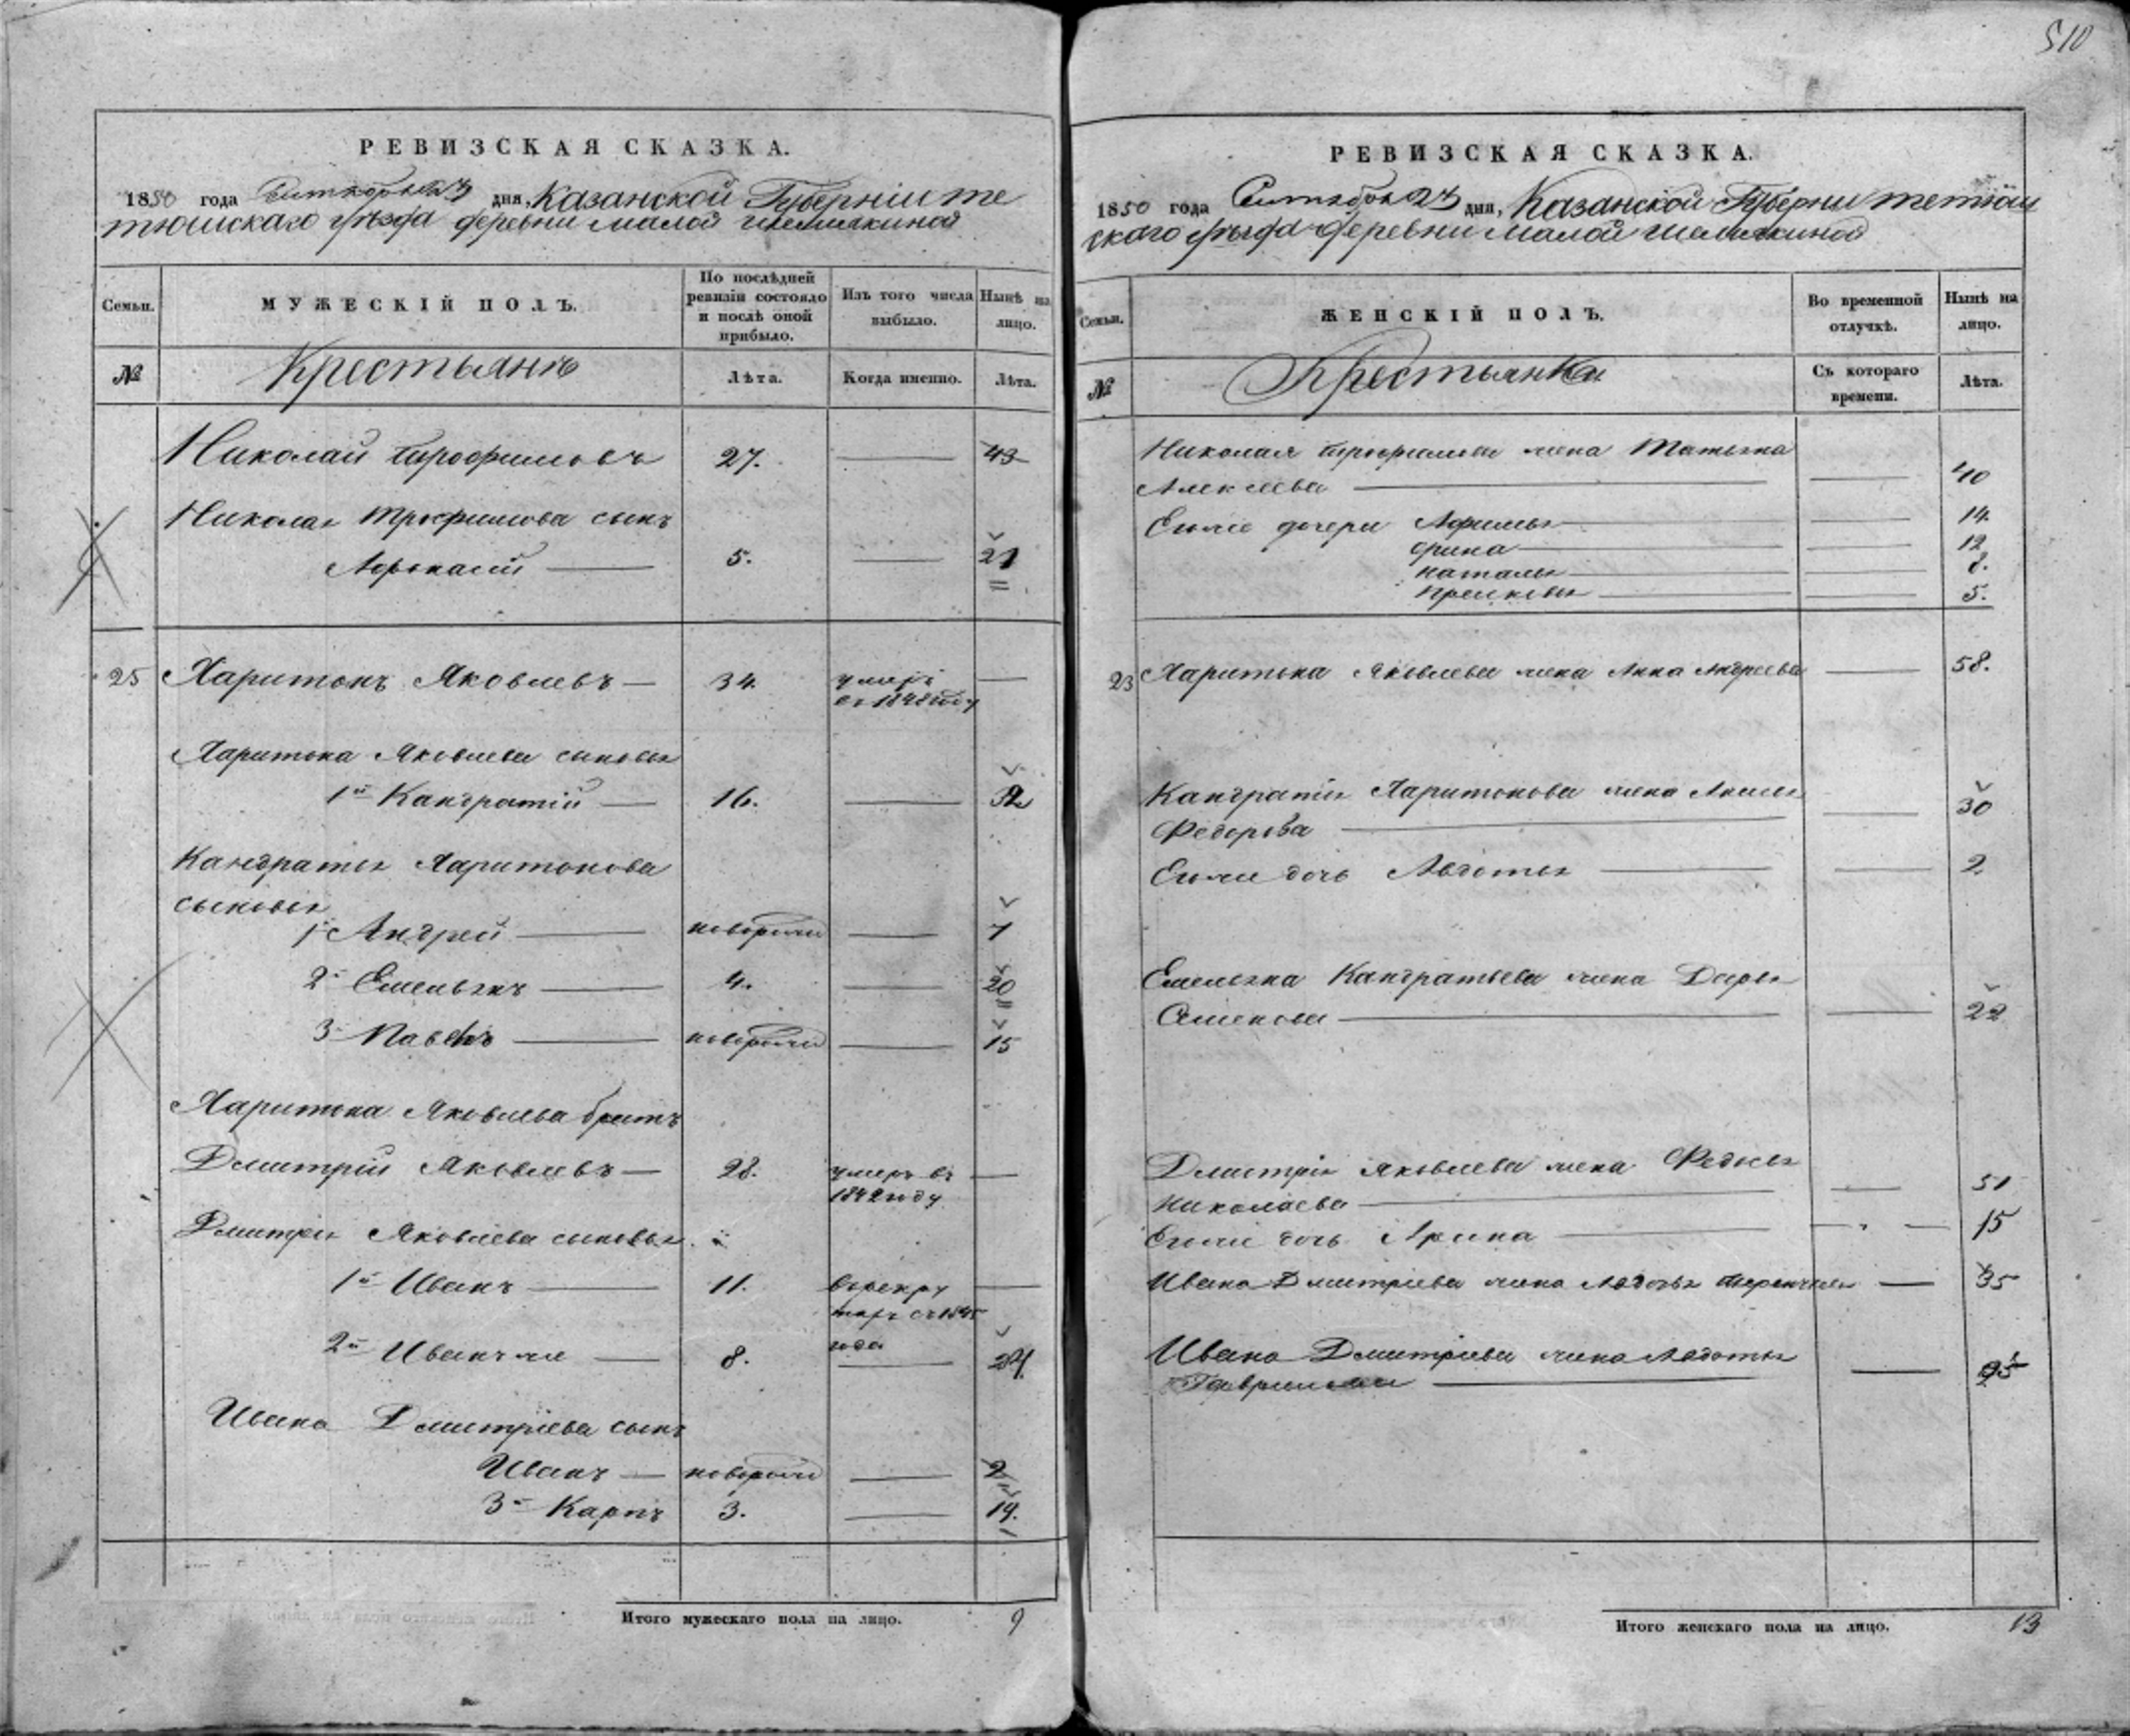 510
РЕВИЗСКАЯ СКАЗКА.
1850 года Сентября 23 дня, Казанской Губерніи те
тюшскаго уѣзда деревни малой шемякиной
Семьи. МУЖЕСКІЙ ПОЛЪ. По послѣдней ревизіи состояло и послѣ оной прибыло. Изъ того числа выбыло. Нынѣ на лицо.
№ Крестьянъ Лѣта. Когда именно. Лѣта.
Николай трофимовъ 27. 43
Николая трофимова сынъ
Афонасий 5. 21
25 Харитонъ Яковлевъ 34. умеръ
въ 1848 году
Харитона Яковлева сыновья
1й Кандратій 16.
Кандратья Харитонова
сыновья
1й Андрей новорожд 7
2й Емельянъ 4. 20
3й Павелъ новорожд 15
Харитона Яковлева братъ
Дмитрій Яковлевъ 28. умеръ въ
1842 году
Дмитрія Яковлева сыновья
1й Иванъ 11. въ рекру
тахъ съ 1845
года
2й Иванъ же 8. 24
Ивана Дмитріева сынъ
Иванъ новорожд 2
3й Карпъ 3. 19.
Итого мужескаго пола на лицо. 9
РЕВИЗСКАЯ СКАЗКА.
1850 года Сентября 23 дня, Казанской Губерни тетюш
ского уѣзда деревни малой шемякиной
Семьи. ЖЕНСКІЙ ПОЛЪ. Во временной отлучкѣ. Нынѣ на лицо.
№ Крестьянки Съ котораго времени. Лѣта.
Николая трофимова жена Татьяна
Алексеева 40
Дочери Афимья 14.
Орина 12
Наталья 8.
Прасковья 5.
23 Харитона Яковлева жена Анна Андреева 58.
Кандратія Харитонова жена
Федорова 30
дочь Авдотья 2
Емельяна Кандратьева жена Дарья
Семенова 22
Дмитрія Яковлева жена Федосья
Николаева 51
дочь Арина 15
Ивана Дмитріева жена 35
Ивана Дмитріева жена Авдотья
Гаврилова 25
Итого женскаго пола на лицо. 13